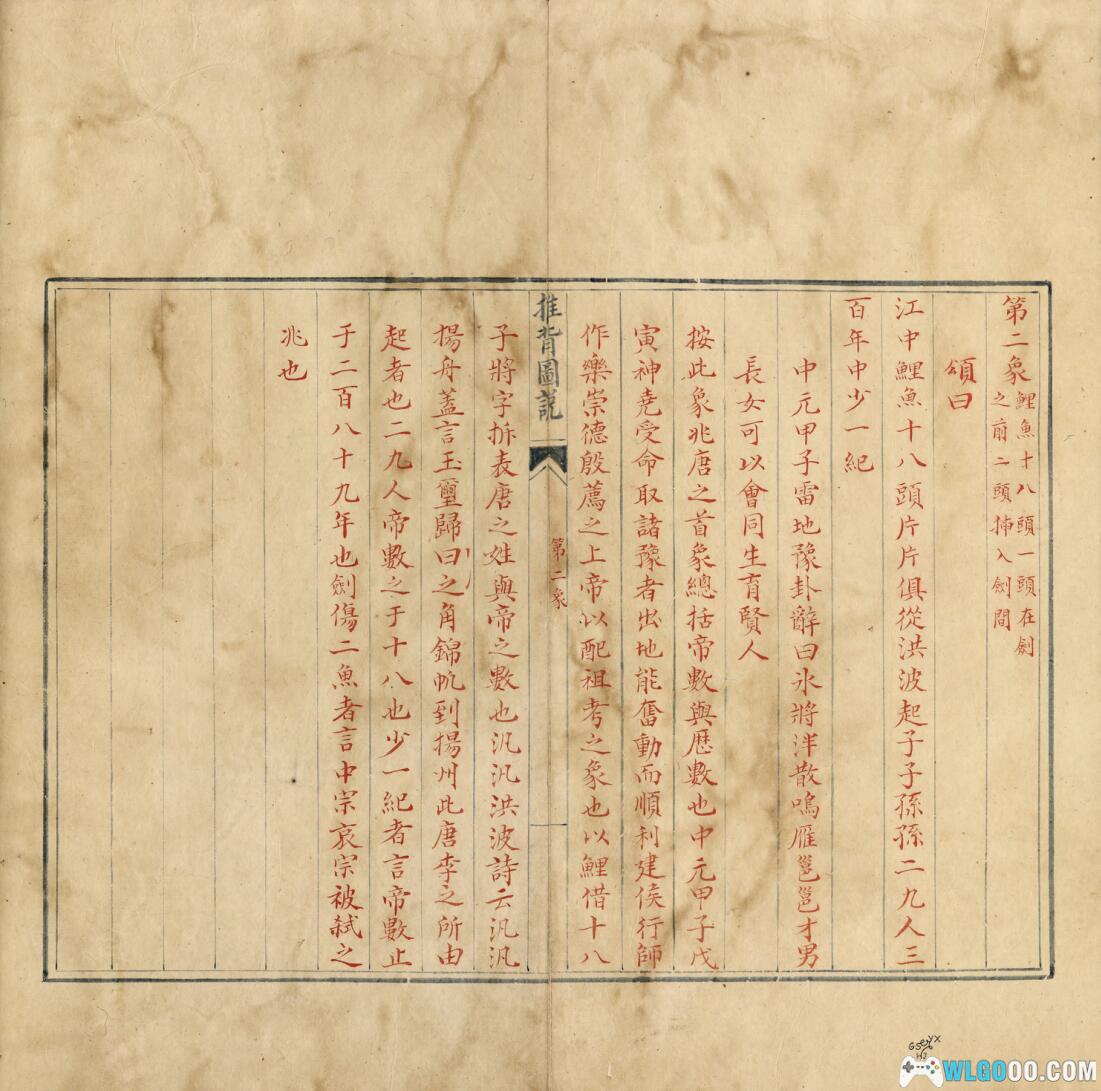 第二象 鯉魚十八頭一頭在劍
之前二頭揷入劍間
頌曰
江中鯉魚十八頭片片俱從洪波起子子孫孫二九人三
百年中少一紀
中元甲子雷地豫卦辭曰氷將泮散鳴雁邕邕才男
長女可以會同生育賢人
按此象兆唐之首象總括帝數與歷數也中元甲子戊
寅神堯受命取諸豫者出地能奮動而順利建侯行師
作樂崇德殷薦之上帝以配祖考之象也以鯉借十八
推背圖說
第二象
子將字拆表唐之姓與帝之數也汎汎洪波詩云汎汎
揚舟盖言玉璽歸曰之角錦帆到揚州此唐李之所由
起者也二九人帝數之于十八也少一紀者言帝數止
于二百八十九年也劍傷二魚者言中宗哀宗被弑之
兆也
WLGOOO.COM